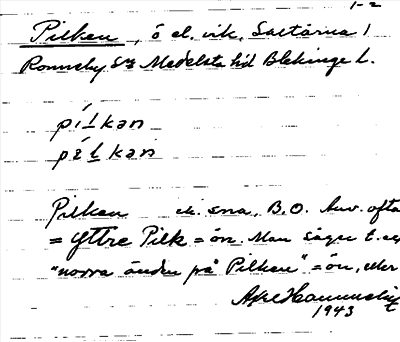 1-2
Pilken, ö el. vik, Saltärna 1
Ronneby sn Medelsta hd Blekinge l.
pílkan
pɛ́lkan
Pilken ek. sna, B.O. Anv. ofta
= Yttre Pilk = ön. Man säger t. ex
"norra änden på Pilken" = ön, eller
1943